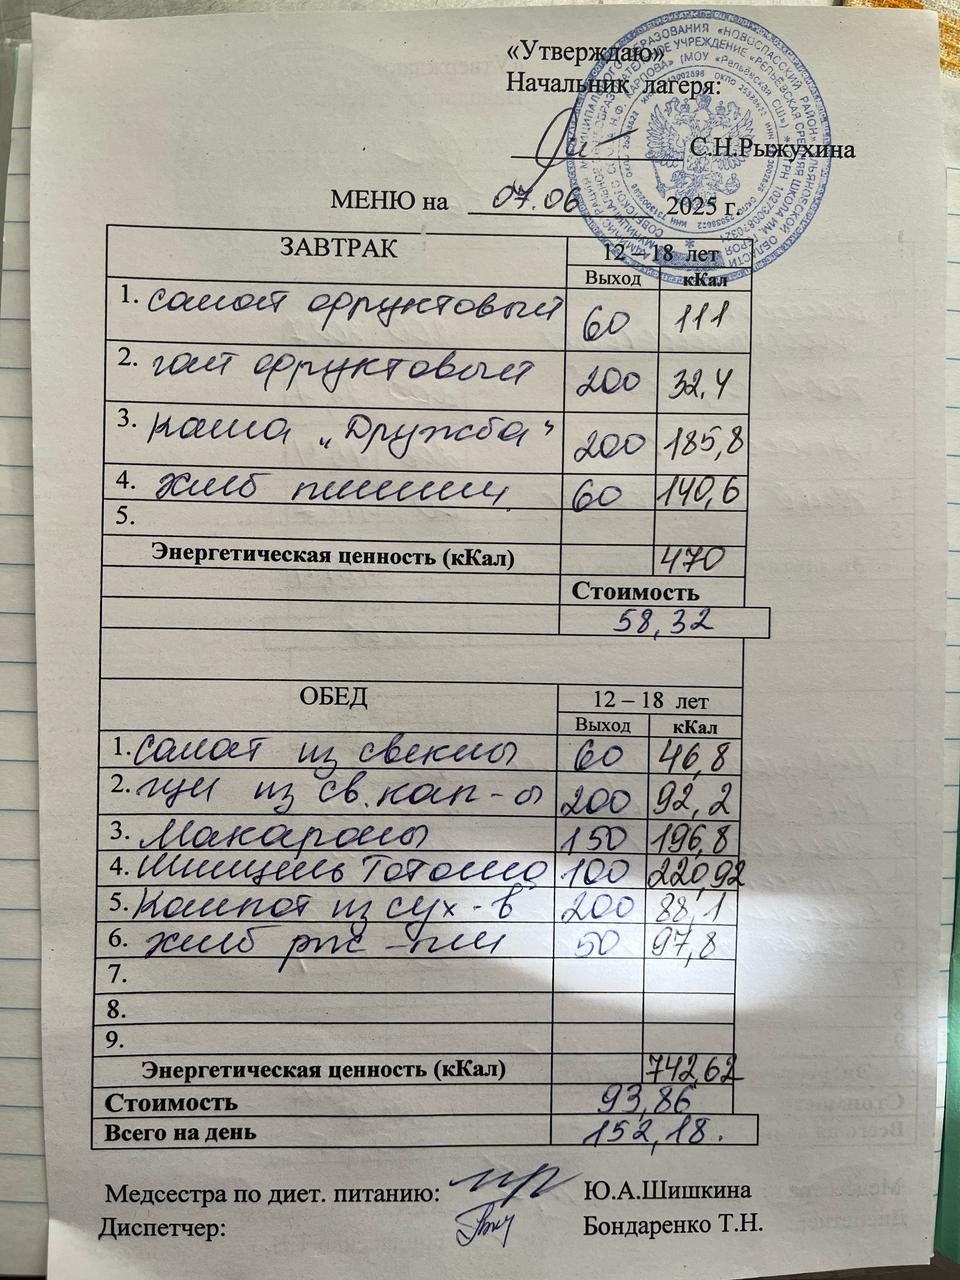 «Утверждаю»
Начальник лагеря:
С.Н.Рыжухина
МЕНЮ на 07.06 2025 г.
ЗАВТРАК 12 – 18 лет
Выход кКал
1. салат фруктовый 60 111
2. чай фруктовый 200 32,4
3. Каша „Дружба" 200 185,8
4. хлеб пшенич. 60 140,6
5.
Энергетическая ценность (кКал) 470
Стоимость
58,32
ОБЕД 12 – 18 лет
Выход кКал
1. Салат из свеклы 60 46,8
2. щи из св. кап-ы 200 92,2
3. Макароны 150 196,8
4. Шницель 100 220,92
5. Компот из сух-в 200 88,1
6. хлеб рж-пш 50 97,8
7.
8.
9.
Энергетическая ценность (кКал) 742,62
Стоимость 93,86
Всего на день 152,18.
Медсестра по диет. питанию: Ю.А.Шишкина
Диспетчер: Бондаренко Т.Н.